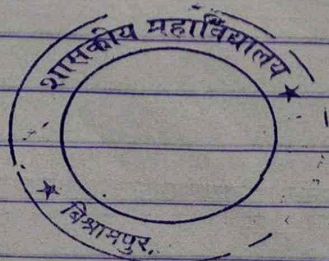 शासकीय महाविद्यालय ★
★ बिश्रामपुर.